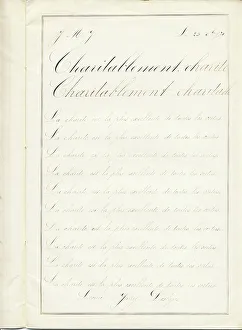 J. M. J.
Charitablement charité
Charitablement charitabl
La charité est la plus excellente de toutes les vertus
La charité est la plus excellente de toutes les vertus
La charité est la plus excellente de toutes les vertus
La charité est la plus excellente de toutes les vertus
La charité est la plus excellente de toutes les vertus
La charité est la plus excellente de toutes les vertus
La charité est la plus excellente de toutes les vertus
La charité est la plus excellente de toutes les vertus
La charité est la plus excellente de toutes les vertus
La charité est la plus excellente de toutes les vertus